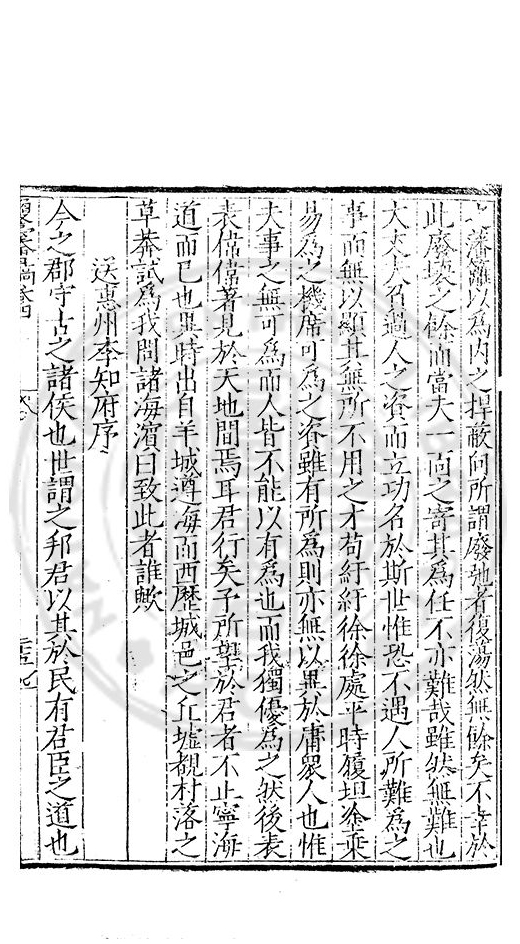 之藩籬以爲內之捍蔽向所謂廢弛者復蕩然無餘矣不幸於
此廢壞之餘而當夫一面之寄其爲任不亦難哉雖然無難也
大丈夫名過人之資而立功名於斯世惟恐不遇人所難爲之
事而無以顯其無所不用之才苟紆紆徐徐處平時履坦塗乘
易爲之機席可爲之資雖有所爲則亦無以異於庸衆人也惟
夫事之無可爲而人皆不能以有爲也而我獨優爲之然後表
表偉偉著見於天地間焉耳君行矣予所望於君者不止寧海
道而已也異時出自羊城遵海而西歷城邑之丘墟覩村落之
草莽試爲我問諸海濱曰致此者誰歟
送惠州李知府序
今之郡守古之諸侯也世謂之邦君以其於民有君臣之道也